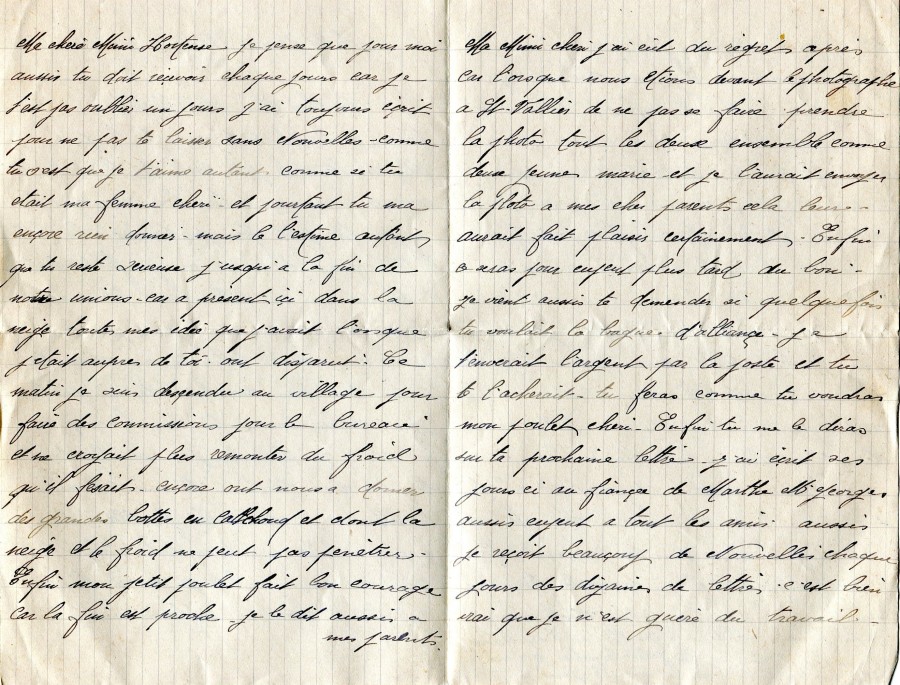 Ma cheré Mimi Hortense je pense que pour moi
aussi tu doit reçevoir chaque jours car je
t'est pas oublier un jours j'ai toujours éçrit
pour ne pas te laisser sans Nouvelles - comme
tu sest que je t'aime autant comme si tu
etait ma femme cheri et pourtant tu ma
ençore rien donner - mais le l'estime autant
que tu reste sereuse jusqu'a la fin de
notre unions - car a present içi dans la
neige toutes mes idié que j'avait l'orsque
j'etait aupres de toi - ont disparut. Ce
matin je suis desçendu au village pour
faire des commissions pour le bureau
et ne croyait plus remonter du froid
qu'il fesait - ençore ont nous a donner
des grandes bottes en catchoud et dont la
neige et le froid ne peut pas penêtrer -
Enfin mon petit poulet fait bon courage
car la fin est proche - je le dit aussis a
mes parents.
Ma Mimi cheri j'ai eut du regret après
car l'orsque nous etions devant le photographe
a St-Vallier de ne pas se faire prendre
la photo tout les deux ensemble comme
deux jeunes marié et je l'aurait envoyer
la photo a mes cher parents cela leurs -
aurait fait plaisir certainement - Enfin
ce seras pour cujent plus tard du boni -
je vient aussis te demender si quelque fois
tu voulait la bague d'alliançe - je
t'enverait l'argent par la poste et tu
te l'acherait - tu feras comme tu voudras
mon poulet cheri - Enfin tu me le diras
sur ta prochaine lettre - j'ai éçrit ses
jours ci au fiançer de Marthe Mr Georges
aussis cujent a tout les amis aussis
je reçoit beauçoup de Nouvelles chaque
jours des dizaines de lettres - c'est bien
vrai que je n'est guère du travail -